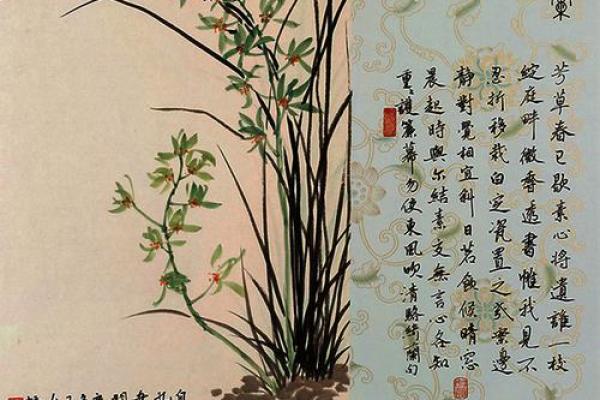 蘭
芳草春已歇素心將遺誰一枝
綻庭畔微香透書帷我見不
忍折移栽白定瓷置之几案邊
靜對覺相宜斜日茗餘候晴窓
晨起時與尔結素交無言心各知
重〻護簾幕勿使東風吹清駱綺蘭句